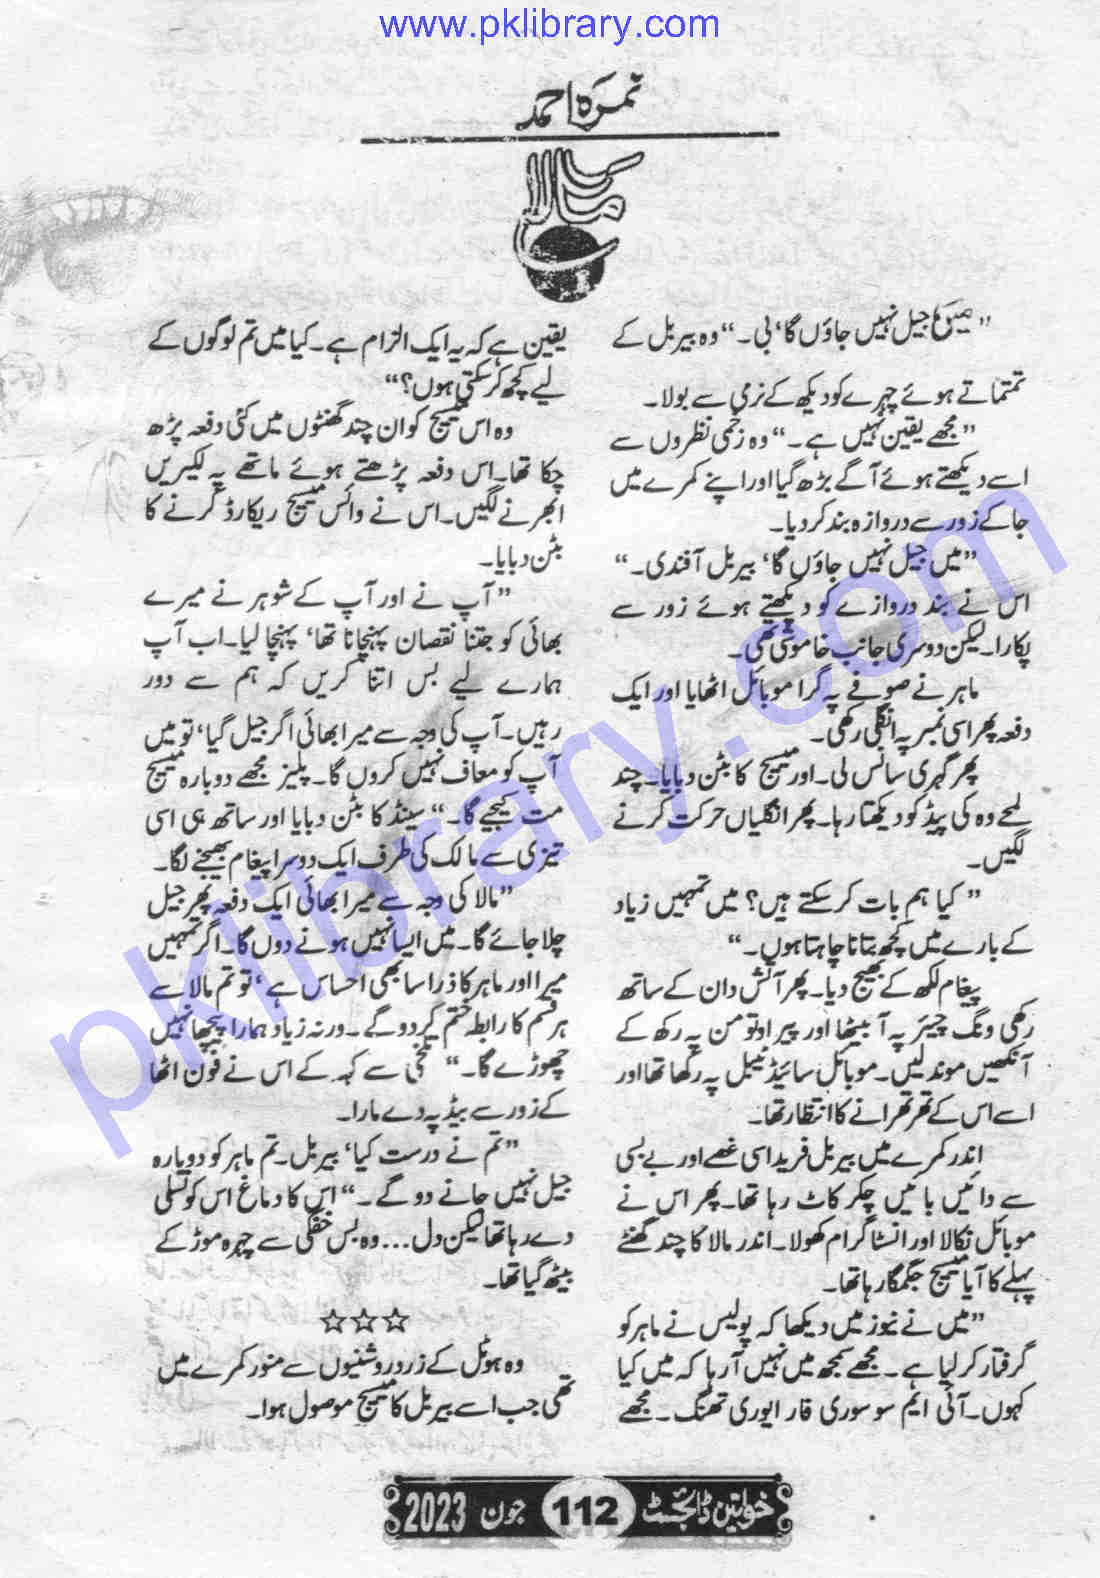 www.pklibrary.com
نمرہ احمد
مالا
”میں جیل نہیں جاؤں گا‘ بی۔“ وہ بیربل کے
تمتماتے ہوئے چہرے کو دیکھ کے نرمی سے بولا۔
”مجھے یقین نہیں ہے۔“ وہ زخمی نظروں سے
اسے دیکھتے ہوئے آگے بڑھ گیا اور اپنے کمرے میں
جا کے زور سے دروازہ بند کر دیا۔
”میں جیل نہیں جاؤں گا‘ بیربل آفندی۔“
اس نے بند دروازے کو دیکھتے ہوئے زور سے
پکارا۔ لیکن دوسری جانب خاموشی تھی۔
ماہر نے صوفے پہ گرا موبائل اٹھایا اور ایک
دفعہ پھر اسی نمبر پہ انگلی رکھی۔
پھر گہری سانس لی۔ اور میسج کا بٹن دبایا۔ چند
لمحے وہ کی پیڈ کو دیکھتا رہا۔ پھر انگلیاں حرکت کرنے
لگیں۔
”کیا ہم بات کر سکتے ہیں؟ میں تمہیں زیاد
کے بارے میں کچھ بتانا چاہتا ہوں۔“
پیغام لکھ کے بھیج دیا۔ پھر آتش دان کے ساتھ
رکھی ونگ چیئر پہ آ بیٹھا اور پیر اوتومن پہ رکھ کے
آنکھیں موند لیں۔ موبائل سائیڈ ٹیبل پہ رکھا تھا اور
اسے اس کے تھرتھرانے کا انتظار تھا۔
اندر کمرے میں بیربل فرید اسی غصے اور بے بسی
سے دائیں بائیں چکر کاٹ رہا تھا۔ پھر اس نے
موبائل نکالا اور انسٹا گرام کھولا۔ اندر مالا کا چند گھنٹے
پہلے کا آیا میسج جگمگا رہا تھا۔
”میں نے نیوز میں دیکھا کہ پولیس نے ماہر کو
گرفتار کر لیا ہے۔ مجھے سمجھ میں نہیں آ رہا کہ میں کیا
کہوں۔ آئی ایم سو سوری فار ایوری تھنگ۔ مجھے
یقین ہے کہ یہ ایک الزام ہے۔ کیا میں تم لوگوں کے
لیے کچھ کر سکتی ہوں؟“
وہ اس میسج کو ان چند گھنٹوں میں کئی دفعہ پڑھ
چکا تھا۔ اس دفعہ پڑھتے ہوئے ماتھے پہ لکیریں
ابھرنے لگیں۔ اس نے وائس میسج ریکارڈ کرنے کا
بٹن دبایا۔
”آپ نے اور آپ کے شوہر نے میرے
بھائی کو جتنا نقصان پہنچانا تھا‘ پہنچا لیا۔ اب آپ
ہمارے لیے بس اتنا کریں کہ ہم سے دور
رہیں۔ آپ کی وجہ سے میرا بھائی اگر جیل گیا‘ تو میں
آپ کو معاف نہیں کروں گا۔ پلیز مجھے دوبارہ میسج
مت کیجیے گا۔“ سینڈ کا بٹن دبایا اور ساتھ ہی اسی
تیزی سے مالک کی طرف ایک دوسرا پیغام بھیجنے لگا۔
”مالا کی وجہ سے میرا بھائی ایک دفعہ پھر جیل
چلا جائے گا۔ میں ایسا نہیں ہونے دوں گا۔ اگر تمہیں
میرا اور ماہر کا ذرا سا بھی احساس ہے‘ تو تم مالا سے
ہر قسم کا رابطہ ختم کر دو گے۔ ورنہ زیاد ہمارا پیچھا نہیں
چھوڑے گا۔“ تلخی سے کہہ کے اس نے فون اٹھا
کے زور سے بیڈ پہ دے مارا۔
”تم نے درست کیا‘ بیربل۔ تم ماہر کو دوبارہ
جیل نہیں جانے دو گے۔“ اس کا دماغ اس کو تسلی
دے رہا تھا لیکن دل... وہ بس خفگی سے چہرہ موڑ کے
بیٹھ گیا تھا۔
☆☆☆
وہ ہوٹل کے زرد روشنیوں سے منور کمرے میں
تھی جب اسے بیربل کا میسج موصول ہوا۔
خواتین ڈائجسٹ 112 جون 2023
pklibrary.com